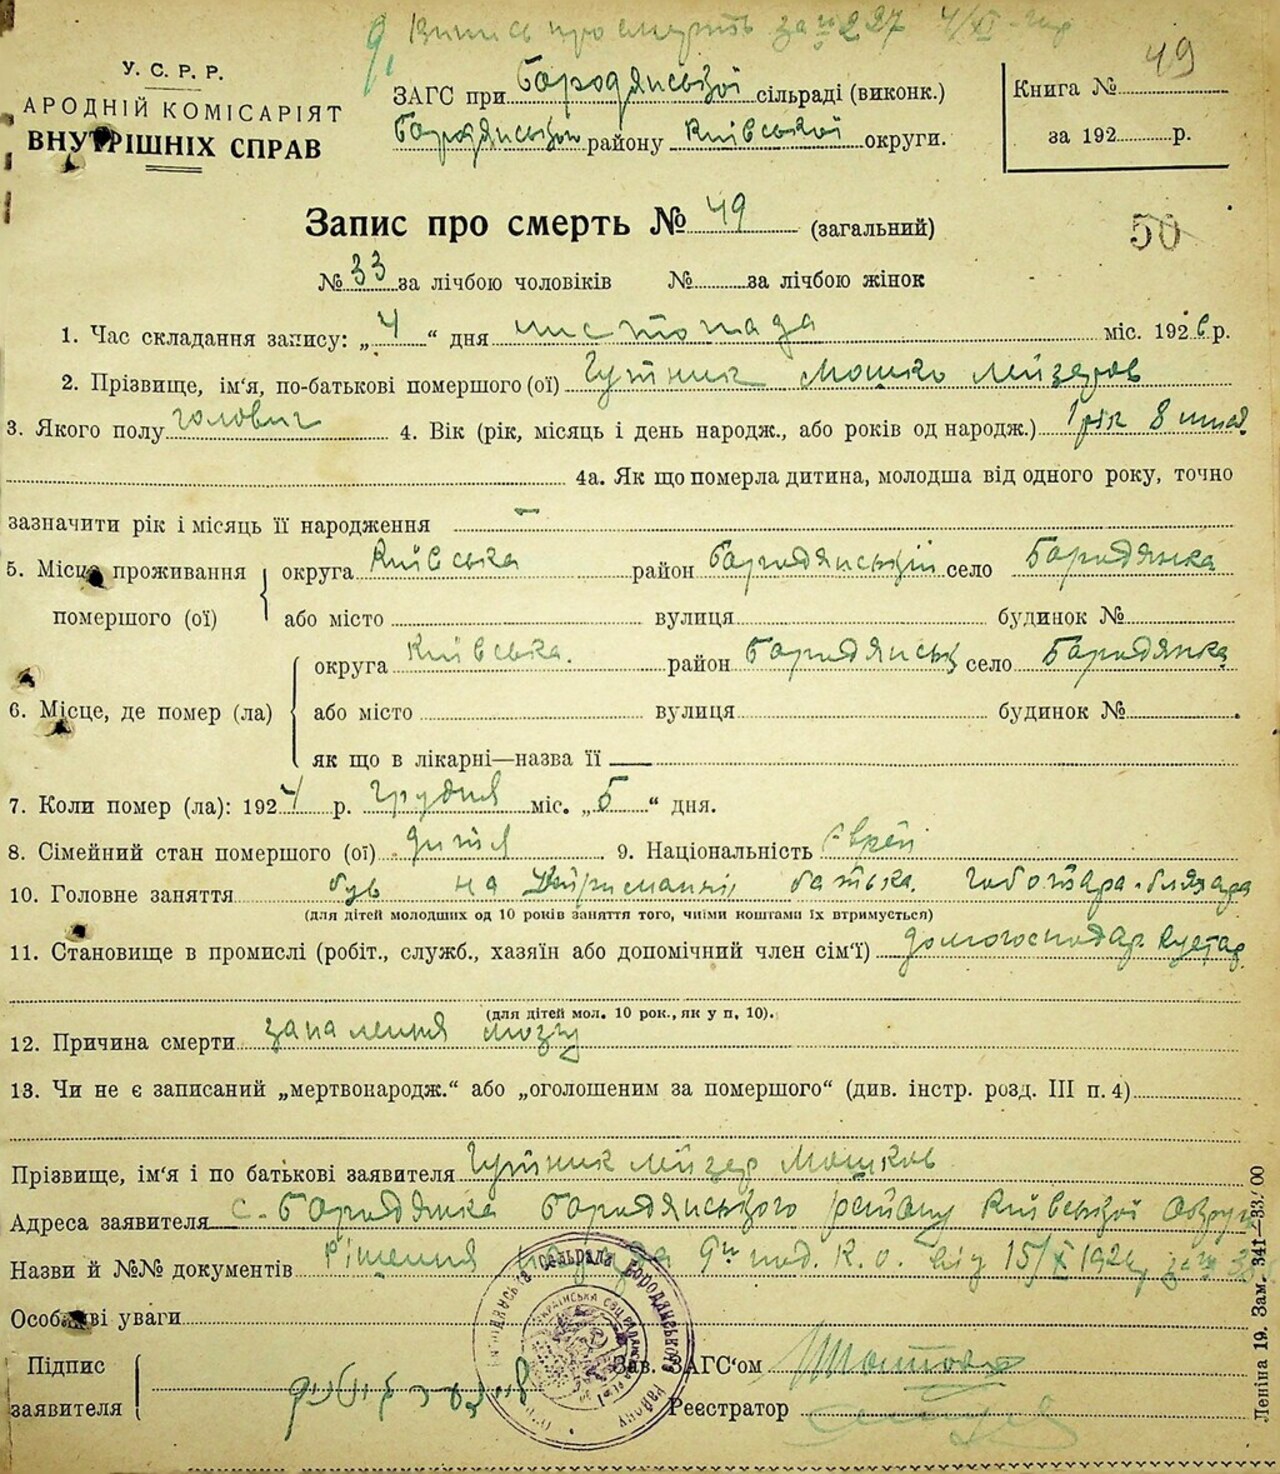 Випись про смерть за № 227 4/XI-26р
У. С. Р. Р.
АРОДНІЙ КОМІСАРІЯТ
ВНУТРІШНІХ СПРАВ
ЗАГС при Бородянської сільраді (виконк.)
Бородянського району Київської округи.
49
Книга №
за 192 р.
Запис про смерть № 49 (загальний)
50
№ 33 за лічбою чоловіків № за лічбою жінок
1. Час складання запису: „4“ дня листопада міс. 1926 р.
2. Прізвище, ім‘я, по-батькові помершого (ої) Гутник Мошко Лейзеров
3. Якого полу чоловіч 4. Вік (рік, місяць і день народж., або років од народж.) 1 рік 8 міс
4а. Як що померла дитина, молодша від одного року, точно
зазначити рік і місяць її народження —
5. Місце проживання помершого (ої) округа Київська район Бородянський село Бородянка
або місто вулиця будинок №
6. Місце, де помер (ла) округа Київська. район Бородянськ село Бородянка
або місто вулиця будинок №
як що в лікарні—назва її
7. Коли помер (ла): 1924 р. грудня міс. „5“ дня.
8. Сімейний стан помершого (ої) дитя 9. Національність Єврей
10. Головне заняття був на утриманні батька. чоботара-бляхара
(для дітей молодших од 10 років заняття того, чиїми коштами їх втримується)
11. Становище в промислі (робіт., служб., хазяїн або допомічний член сім‘ї) домогосподар кустар
(для дітей мол. 10 рок., як у п. 10).
12. Причина смерти запалення мозгу
13. Чи не є записаний „мертвонародж.“ або „оголошеним за помершого“ (див. інстр. розд. III п. 4)
Прізвище, ім‘я і по батькові заявителя Гутник Лейзер Мошков
Адреса заявителя с. Бородянка Бородянського району Київської округи
Назви й №№ документів Рішення нарсуда 9ї від 15/X 1926
Особливі уваги
Підпис заявителя
Зав. ЗАГС‘ом
Реєстратор
Леніна 19. Зам. 341—33. 00